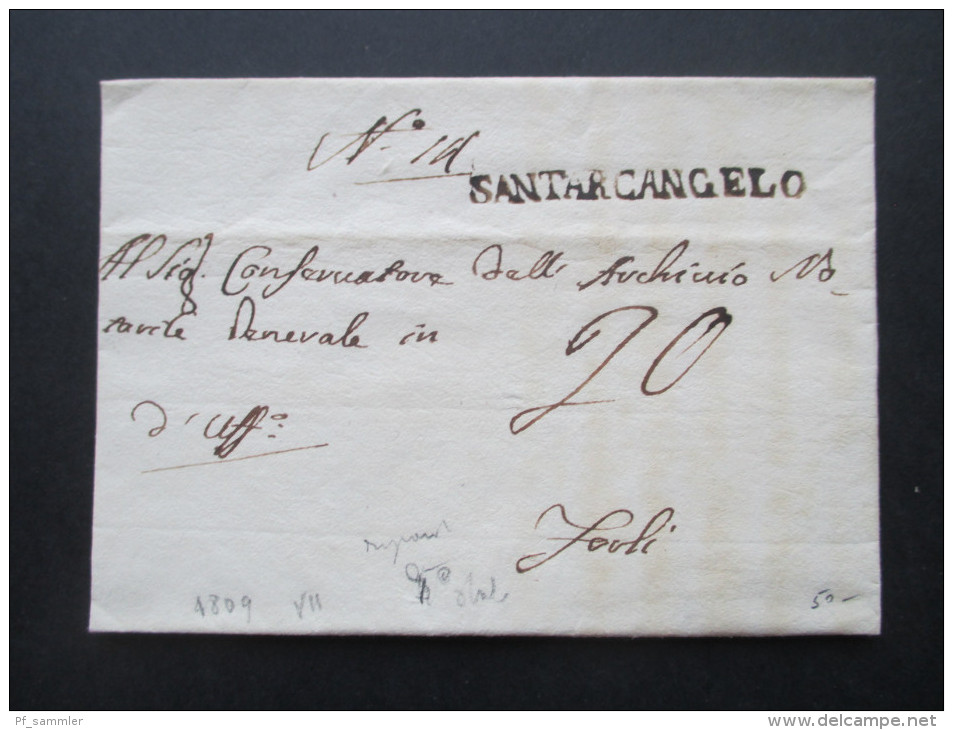 N.o 14
SANTARCANGELO
Al Sig. Conservatore dell' Archivio No-
tarile Generale in
20
d' Uff.o
Forlì
1809 VII
50-
Pf_sammler
www.delcampe.net